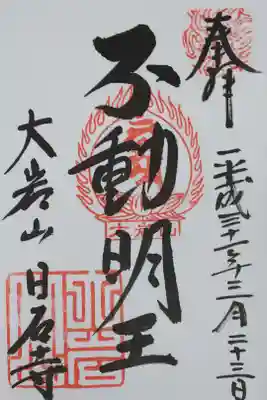 奉拝
平成三十一年三月二十三日
不動明王
大岩山
日石寺